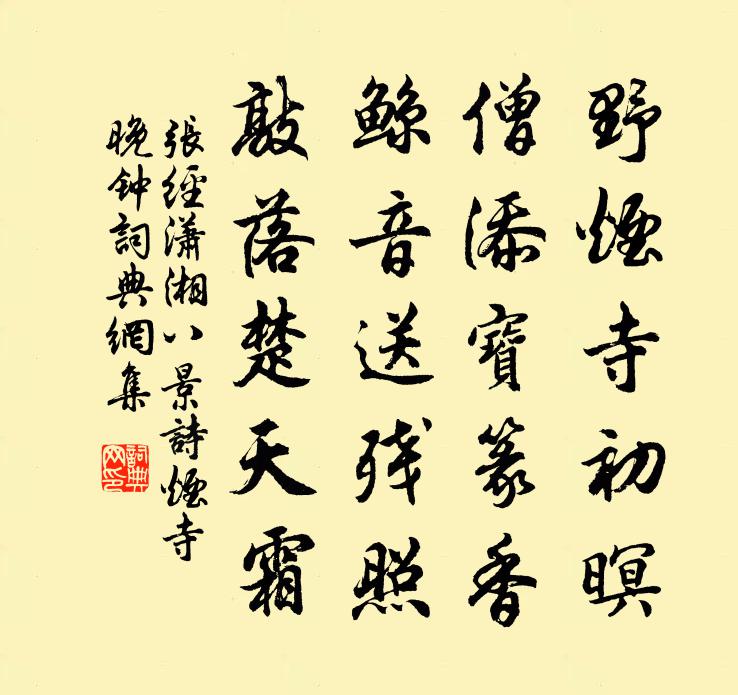 野煙寺初暝
僧添寶篆香
鯨音送残照
敲落楚天霜
張經瀟湘八景詩煙寺
晚钟詞典網集
詞典网印